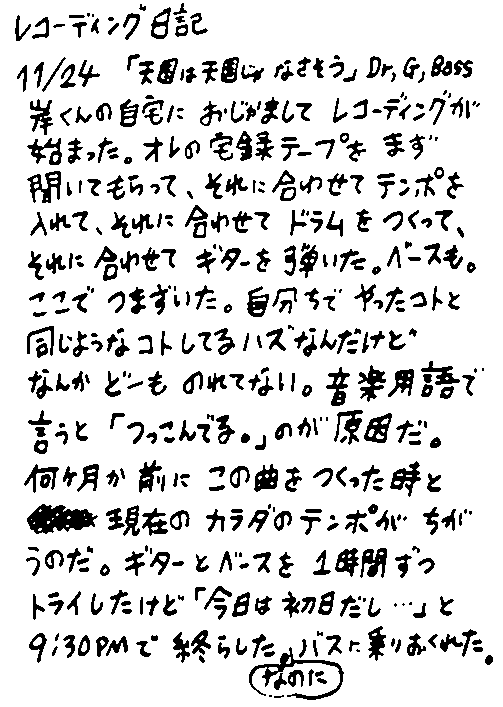 レコーディング日記
11/24 「天国は天国じゃなさそう」Dr, G, Bass
岸くんの自宅に おじゃまして レコーディングが
始まった。オレの宅録テープを まず
聞いてもらって、それに合わせて テンポを
入れて、それに 合わせて ドラムを つくって、
それに 合わせて ギターを 弾いた。ベースも。
ここで つまずいた。自分ちで やったコトと
同じような コトしてるハズなんだけど
なんか どーも のれてない。音楽用語で
言うと「つっこんでる。」のが 原因だ。
何ヶ月か 前に この曲を つくった時と
現在の カラダのテンポが ちが
うのだ。ギターと ベースを 1時間ずつ
トライしたけど「今日は 初日だし…」と
9:30PMで 終らした。バスに乗りおくれた。
なのに